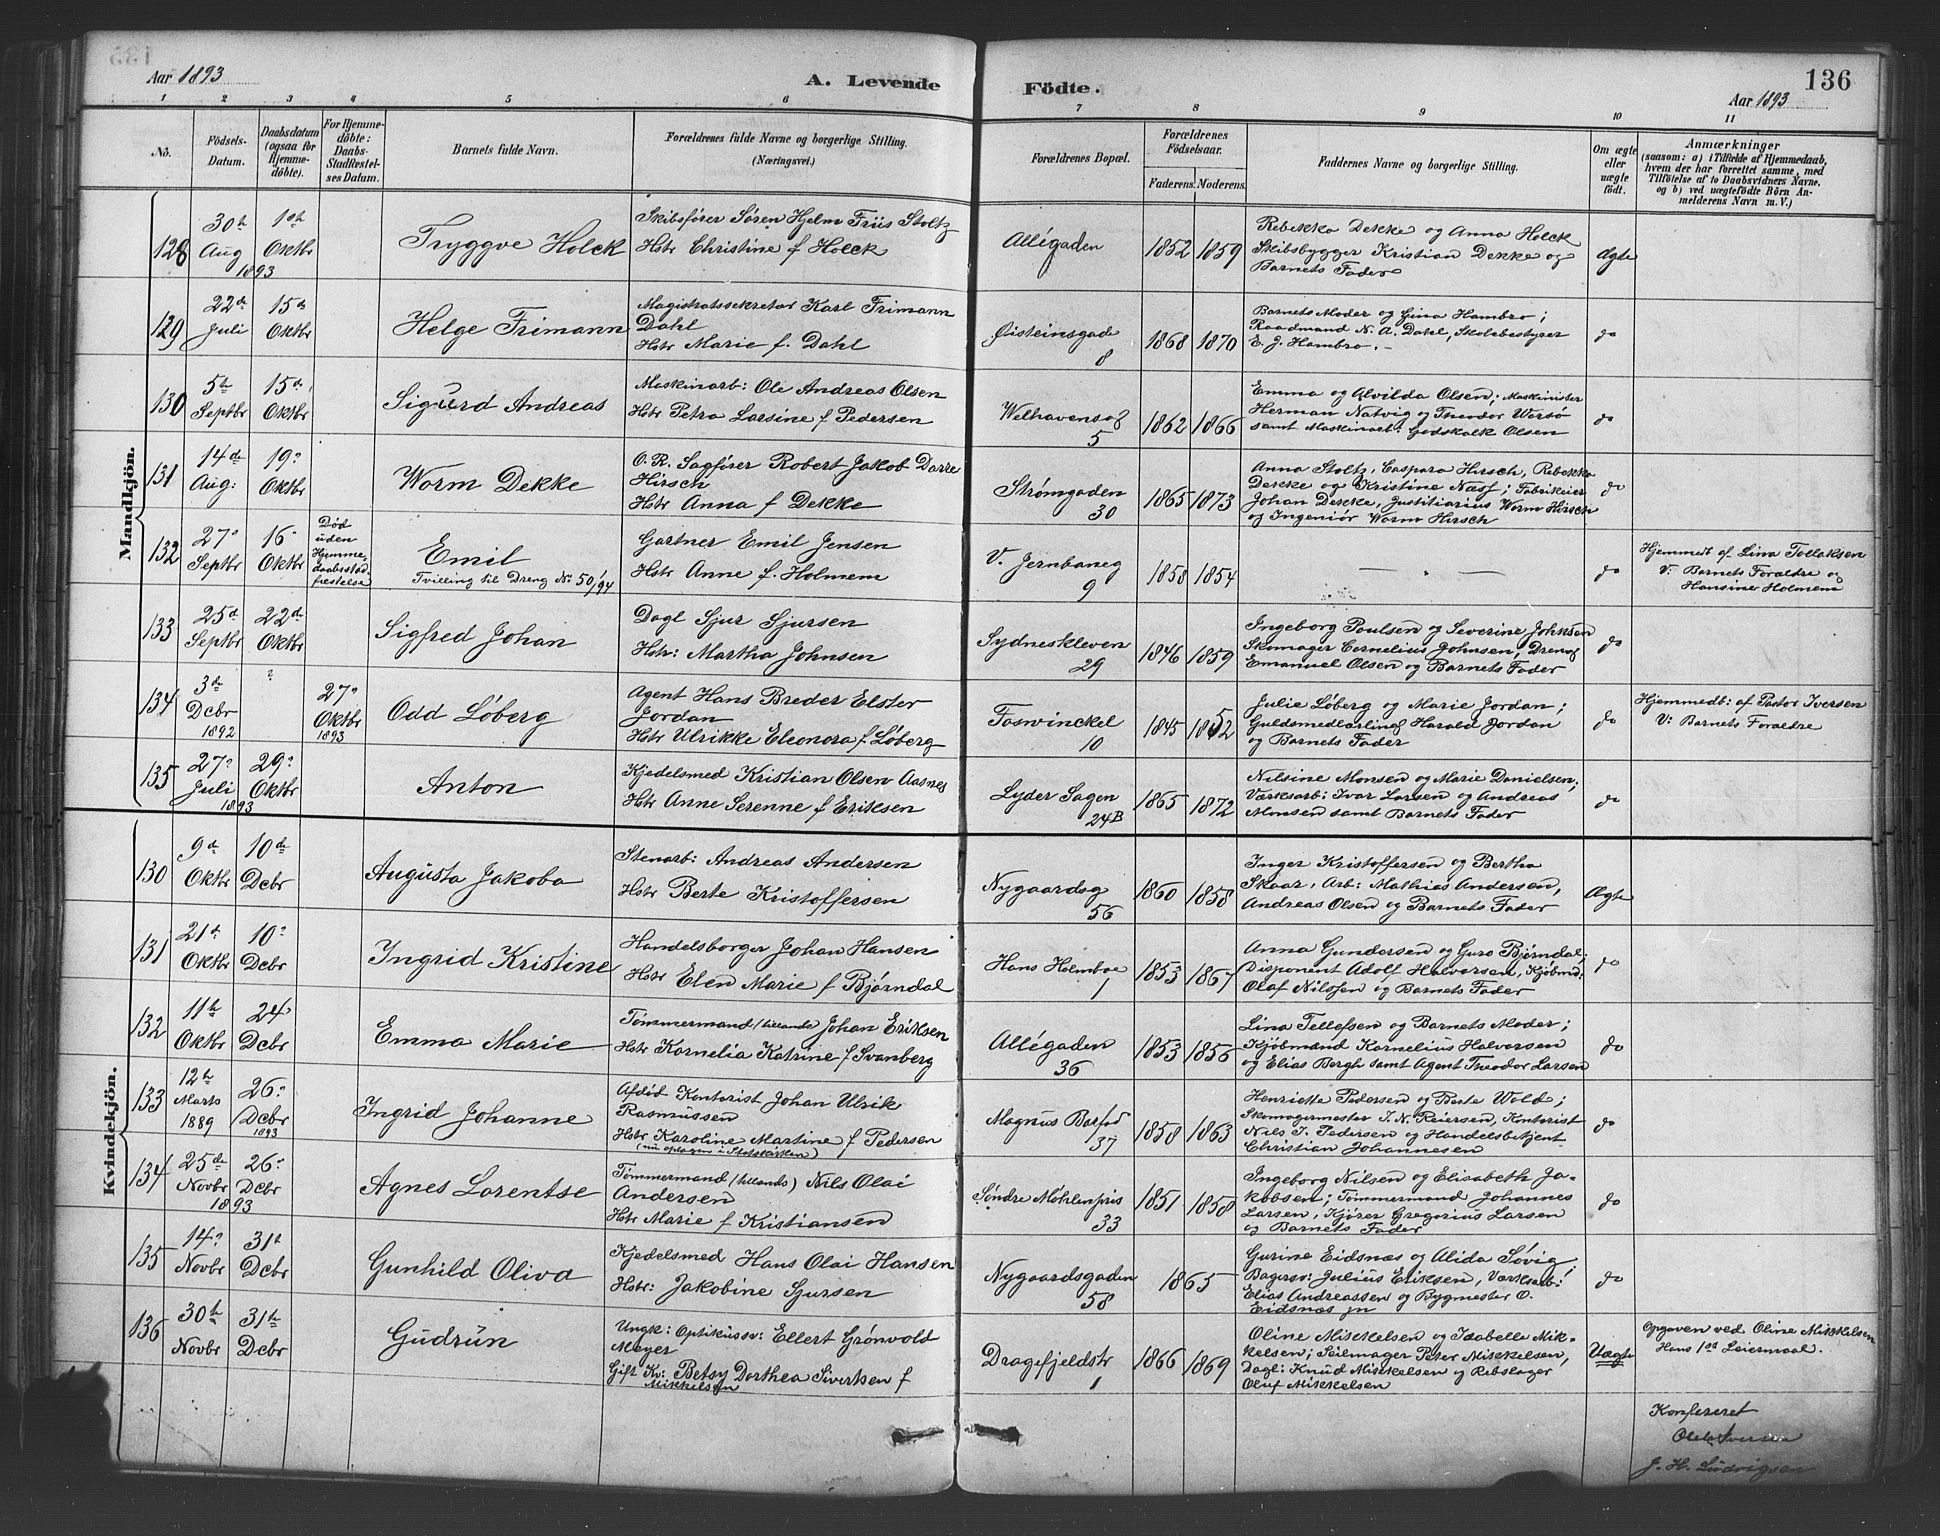 Aar 1893
A. Levende Födte.
136
Aar 1893
1 2 3 4 5 6 7 8 9 10 11
No.
Födsels-Datum.
Daabsdatum (ogsaa for Hjemme-döbte).
For Hjemme-döbte: Daabs-Stadfæstel-ses Datum.
Barnets fulde Navn.
Forældrenes fulde Navne og borgerlige Stilling. (Næringsvei.)
Forældrenes Bopæl.
Forældrenes Födselsaar.
Faderens. Moderens.
Faddernes Navne og borgerlige Stilling.
Om ægte eller uægte födt.
Anmærkninger
(saasom: a) i Tilfælde af Hjemmedaab, hvem der har forrettet samme, med Tilföielse af to Daabsvidners Navne, og b) ved uægtefödte Börn Anmelderens Navn m. V.)
Mandkjön.
128
30th Aug 1893
1st Oktbr
Tryggve Holck
Skibsfører Søren Hjelm Friis Stoltz
Hstr Christine f Holck
Allégaden
1852 1859
Rebekka Dekke og Anna Holck
Skibsbygger Kristian Dekke og
Barnets Fader
Ægte
129
22de Juli
15de Oktbr
Helge Frimann
Magistratssekretær Karl Frimann
Dahl
Hstr Marie f. Dahl
Øisteinsgade
8
1868 1870
Barnets Moder og Gina Hambro;
Raadmand N. A. Dahl, Skolebestyrer
E. J. Hambro.
do
130
5te Septbr
15de Oktbr
Sigurd Andreas
Maskinarb: Ole Andreas Olsen
Hstr Petra Larsine f Pedersen
Welhavensg
5
1862 1866
Emma og Alvilda Olsen; Maskinister
Herman Natvig og Theodor Worsö
samt Maskinarb: Godskalk Olsen
do
131
14de Aug:
19" Oktbr
Worm Dekke
O. R. Sagfører Robert Jakob Darre
Hirsch
Hstr Anna f Dekke
Strømgaden
30
1865 1873
Anna Stoltz, Caspara Hirsch, Rebekka
Dekke og Kristine Næss; Fabrikeier
Johan Dekke, Justitiarius Worm Hirsch
og Ingeniör Worm Hirsch
do
132
27" Septbr
16" Oktbr
Død uden Hjemme-daabsstad-fæstelse
Emil
Tvilling til Dreng No 50/94
Gartner Emil Jensen
Hstr Anne f. Holmem
V. Jernbaneg
9
1858 1854
do
Hjemmedt af Lina Tollaksen
V: Barnets Forældre og
Hansine Holmem
133
25de Septbr
22de Oktbr
Sigfred Johan
Dagl Sjur Sjursen
Hstr: Martha Johnsen
Sydneskleven
29
1846 1859
Ingeborg Poulsen og Severine Johnsen
Skomager Cornelius Johnsen, Dreng
Emanuel Olsen og Barnets Fader
do
134
3de Dcbr 1892
27" Oktbr 1893
Odd Løberg
Agent Hans Breder Elster
Jordan
Hstr Ulrikke Eleonora f Løberg
Foswinckel
10
1845 1852
Julie Løberg og Marie Jordan;
Guldsmedlærling Harald Jordan
og Barnets Fader
do
Hjemmedb: af Pastor Iversen
V: Barnets Forældre
135
27" Juli 1893
29" Oktbr
Anton
Kjedelsmed Kristian Olsen Aasnes
Hstr Anne Serenne f Eriksen
Lyder Sagen
24B
1865 1872
Nilsine Monsen og Marie Danielsen;
Værksarb: Ivar Larsen og Andreas
Monsen samt Barnets Fader
do
Kvindekjön.
130
9de Oktbr
10de Dcbr
Augusta Jakoba
Stenarb: Andreas Andersen
Hstr Berte Kristoffersen
Nygaardsg
56
1860 1858
Inger Kristoffersen og Bertha
Skaar, Arb: Mathias Andersen,
Andreas Olsen og Barnets Fader
Ægte
131
21de Oktbr
10" Dcbr
Ingrid Kristine
Handelsborger Johan Hansen
Hstr Elen Marie f Bjørndal
Hans Holmboe
1
1853 1867
Anna Gundersen og Guro Bjørndal;
Disponent Adolf Halvorsen, Kjöbmd
Olaf Nilssen og Barnets Fader
do
132
11te Oktbr
24" Dcbr
Emma Marie
Tömmermand (tillands) Johan Eriksen
Hstr Kornelia Katrine f Svanberg
Allégaden
36
1853 1856
Lina Tellefsen og Barnets Moder;
Kjöbmand Kornelius Halvorsen
og Elias Bergh samt Agent Theodor Larsen
do
133
12te Marts 1889
26" Dcbr 1893
Ingrid Johanne
Afdöd Kontorist Johan Ulrik
Rasmussen
Hstr Karoline Martine f Pedersen
(nu optagen i Statskirken)
Magnus Barfod
37
1858 1863
Henriette Pedersen og Berte Wold;
Skomagermester J. N. Reiersen, Kontorist
Nils J. Pedersen og Handelsbetjent
Christian Johannesen
do
134
25de Novbr 1893
26" Dcbr
Agnes Lorentse
Tömmermand (tillands) Nils Olai
Andersen
Hstr Marie f Kristiansen
Søndre Möhlenpris
33
1851 1858
Ingeborg Nilsen og Elisabeth Ja-
kobsen; Tömmermand Johannes
Larsen, Kjörer Gregorius Larsen
og Barnets Fader
do
135
14" Novbr
31te Dcbr
Gunhild Oliva
Kjedelsmed Hans Olai Hansen
Hstr: Jakobine Sjursen
Nygaardsgaden
58
1865
Gurine Eidsnæs og Alida Søvig;
Bagersv: Julius Eriksen, Værksarb:
Elias Andreassen og Bygmester O.
Eidsnæs jn
do
136
30te Novbr
31te Dcbr
Gudrun
Ungk: Optikussv: Ellert Grönvold
Meyer
Gift Kv: Betsy Dorthea Sivertsen f
Mikkelsen
Dragefjeldstr
1
1866 1869
Oline Mikkelsen og Isabelle Mik-
kelsen; Seilmager Peter Mikkelsen,
Dagl: Knud Mikkelsen og Rebslager
Oluf Mikkelsen
Uægte
Opgaven ved Oline Mikkelsen
Hans 1ste Leiermaal.
Konfereret
Ole Iversen
J. H. Ludvigsen